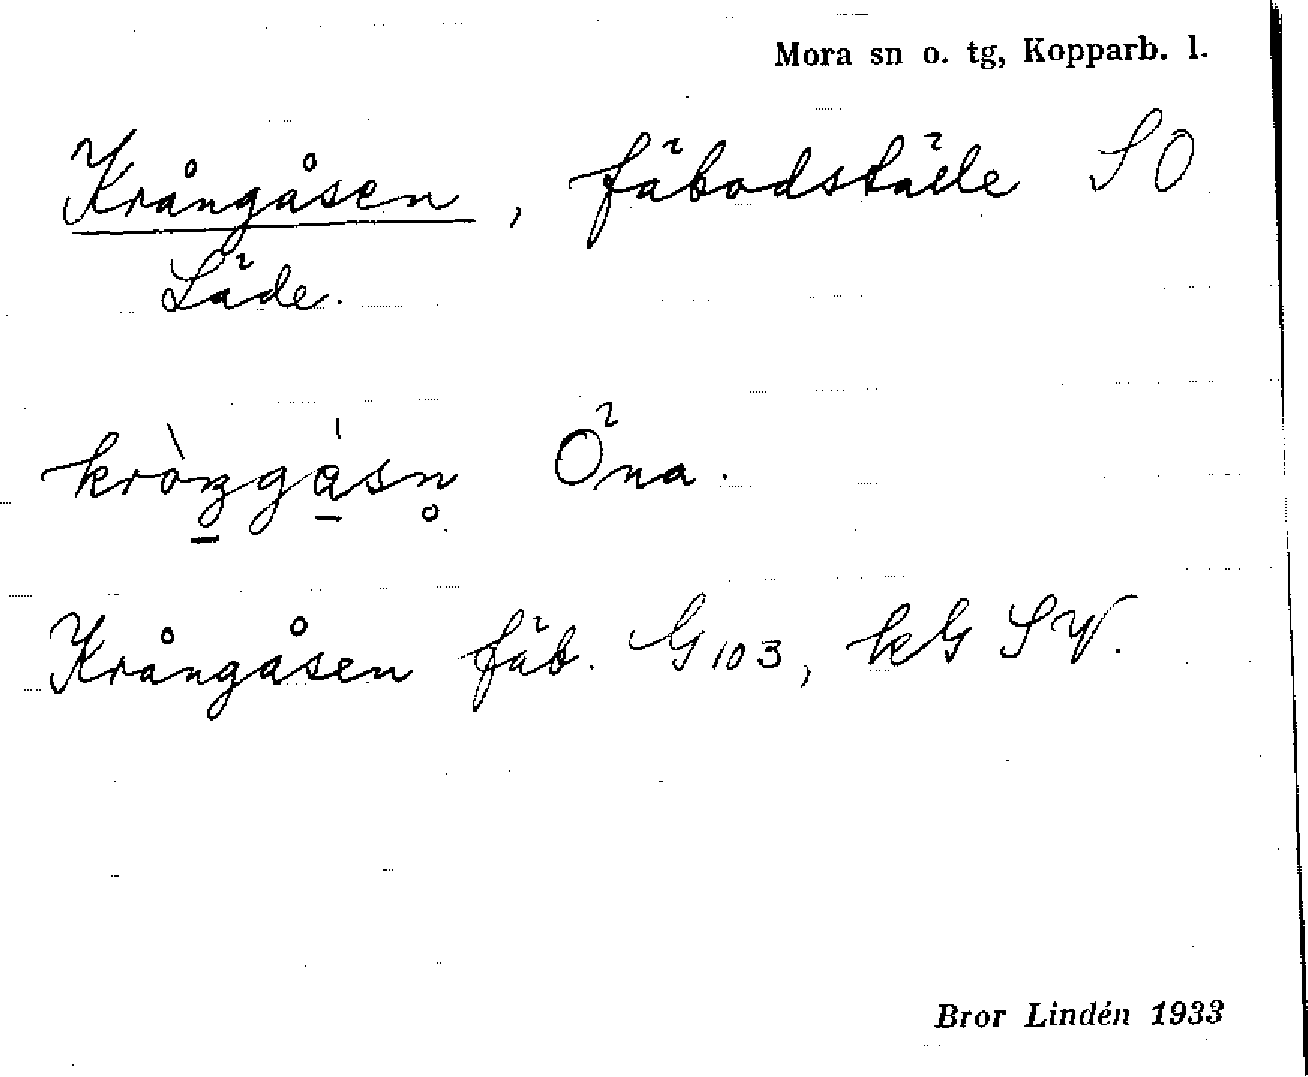 Mora sn o. tg, Kopparb. l.
Krångåsen, fäbodställe SO
Läde.
Öna.
Krångåsen fäb. G103, kG SV.
Bror Lindén 1933